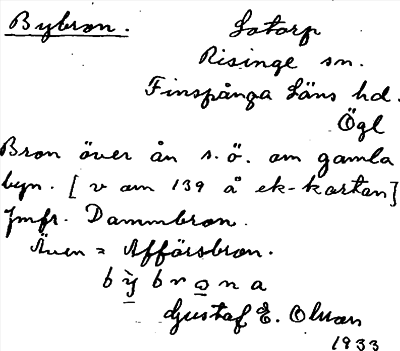 Bybron. Lotorp
Risinge sn.
Finspånga Läns hd.
Ögl
Bron över ån s. ö. om gamla
byn. [ v om 139 å ek-kartan]
Jmfr. Dammbron.
Även = Affärsbron.
bỳbrona
Gustaf E. Olson
1933